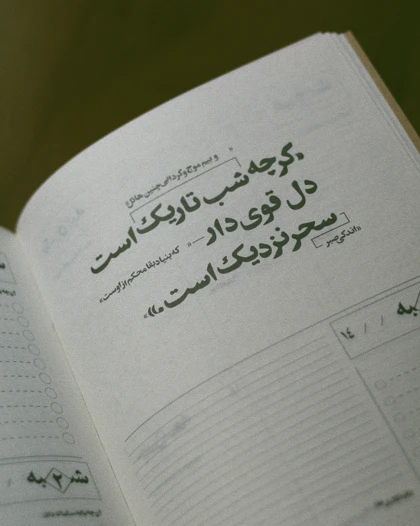 و بیم موج و گردابی چنین هائل
«گرچه شب تاریک است
دل قوی دار —
که بنیاد بقا محکم از اوست»
سحر نزدیک است.»
«اندکی صبر
۱۴ / /
شنبه